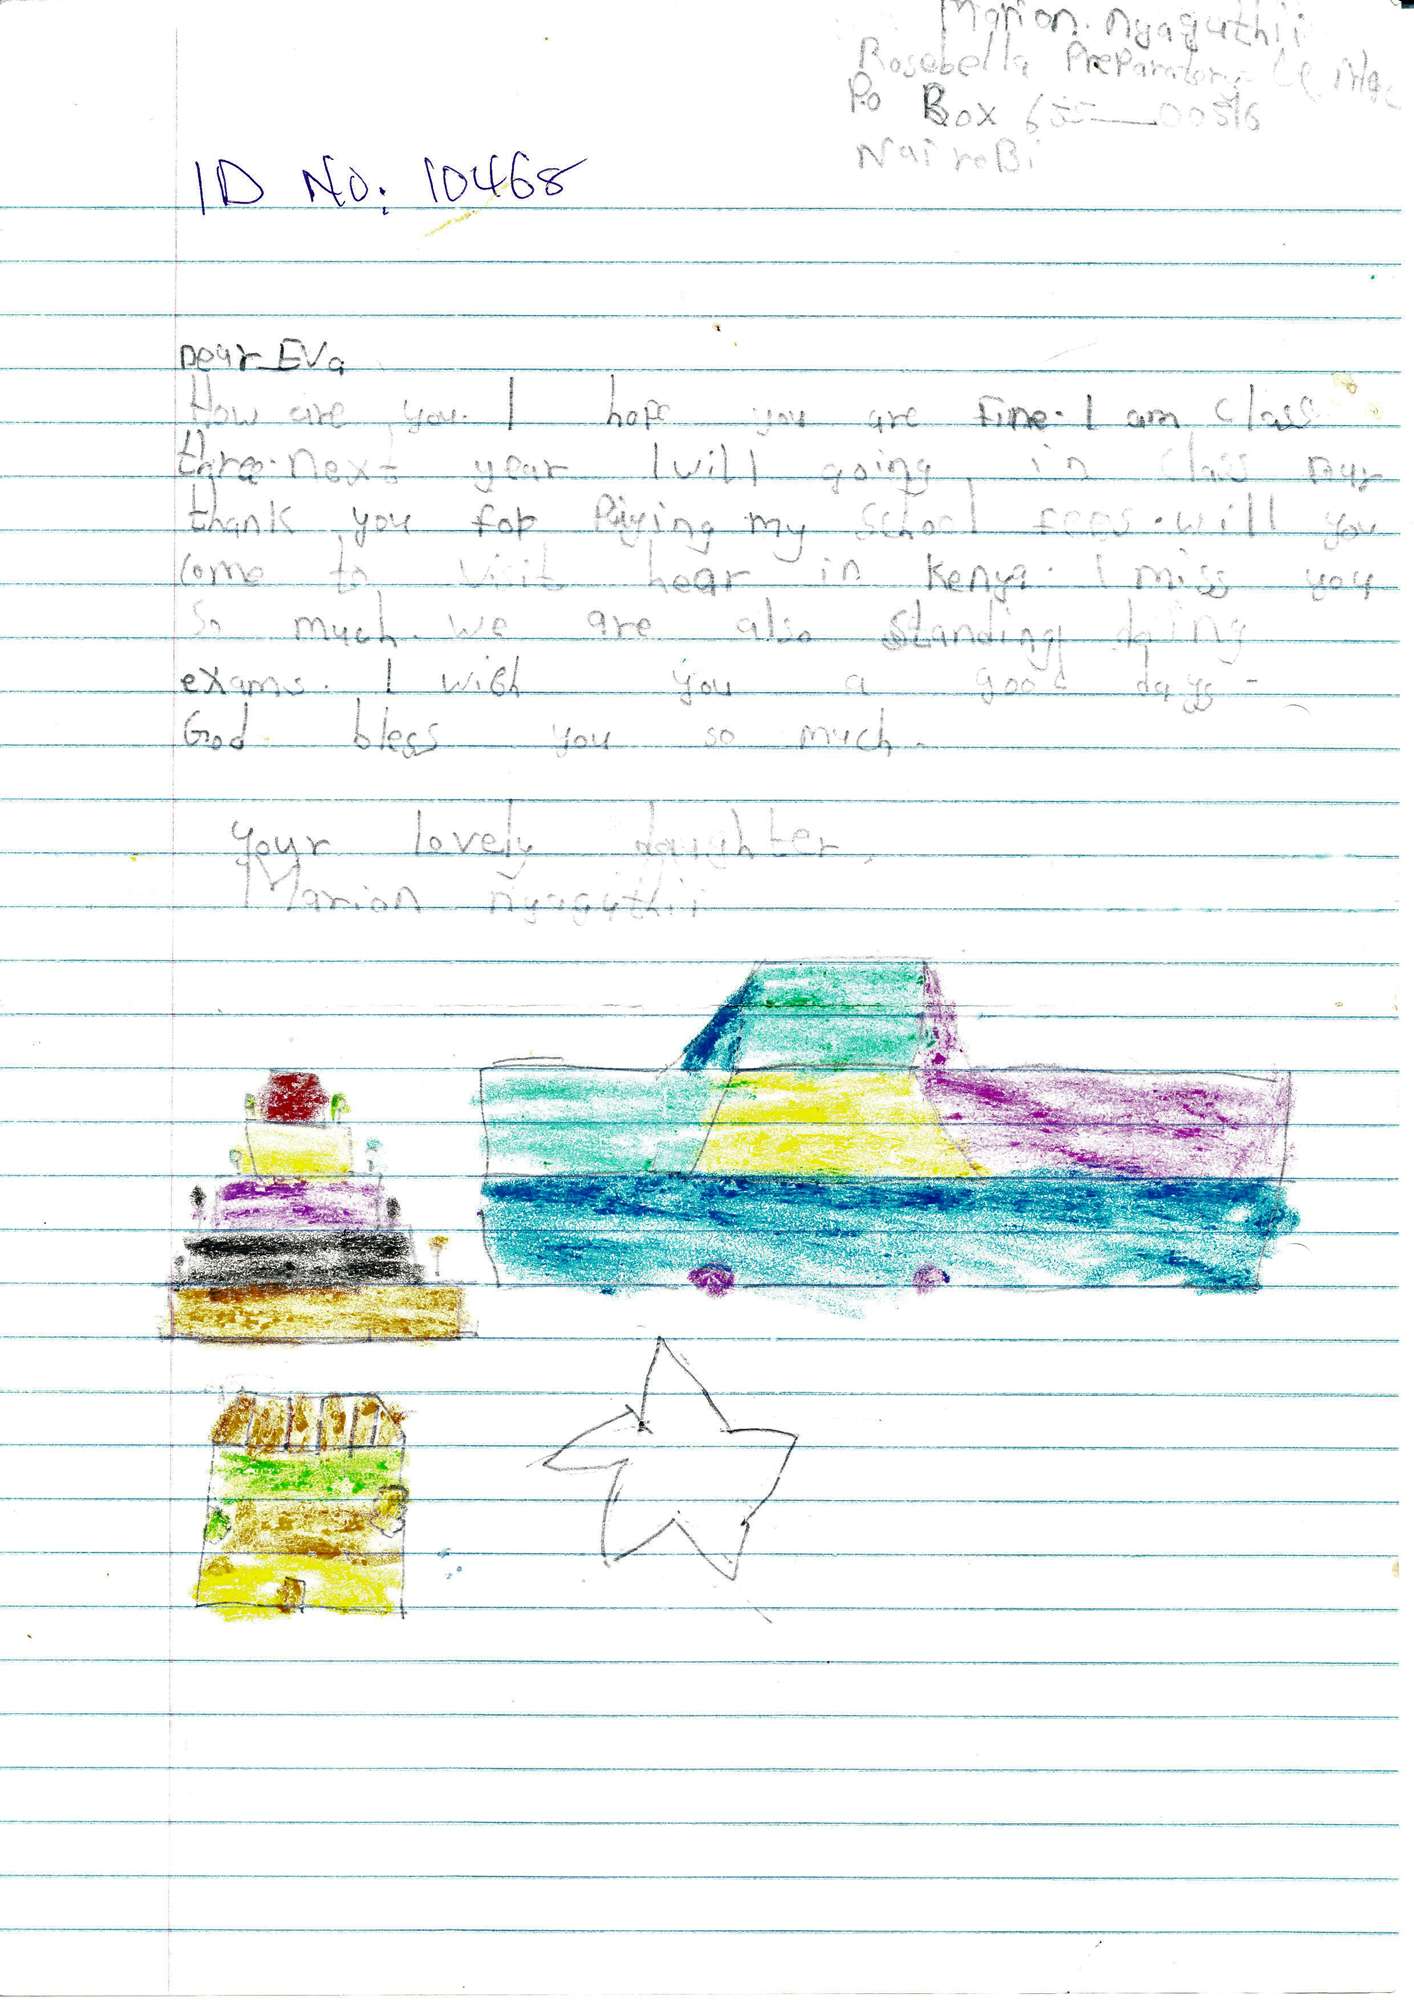 Marion. nyaguthii
Rosebella Preparatory
Po Box 00516
NairoBi
ID NO: 10468
Dear Eva
How are you. I hope you are Fine. I am class
three. next year I will going in class
thank you for Paying my school fees. will you
come to visit hear in kenya. I miss you
So much. we are also standing doing
exams. I wish you a good days-
God bless you so much.
Your lovely daughter,
Marion nyaguthii